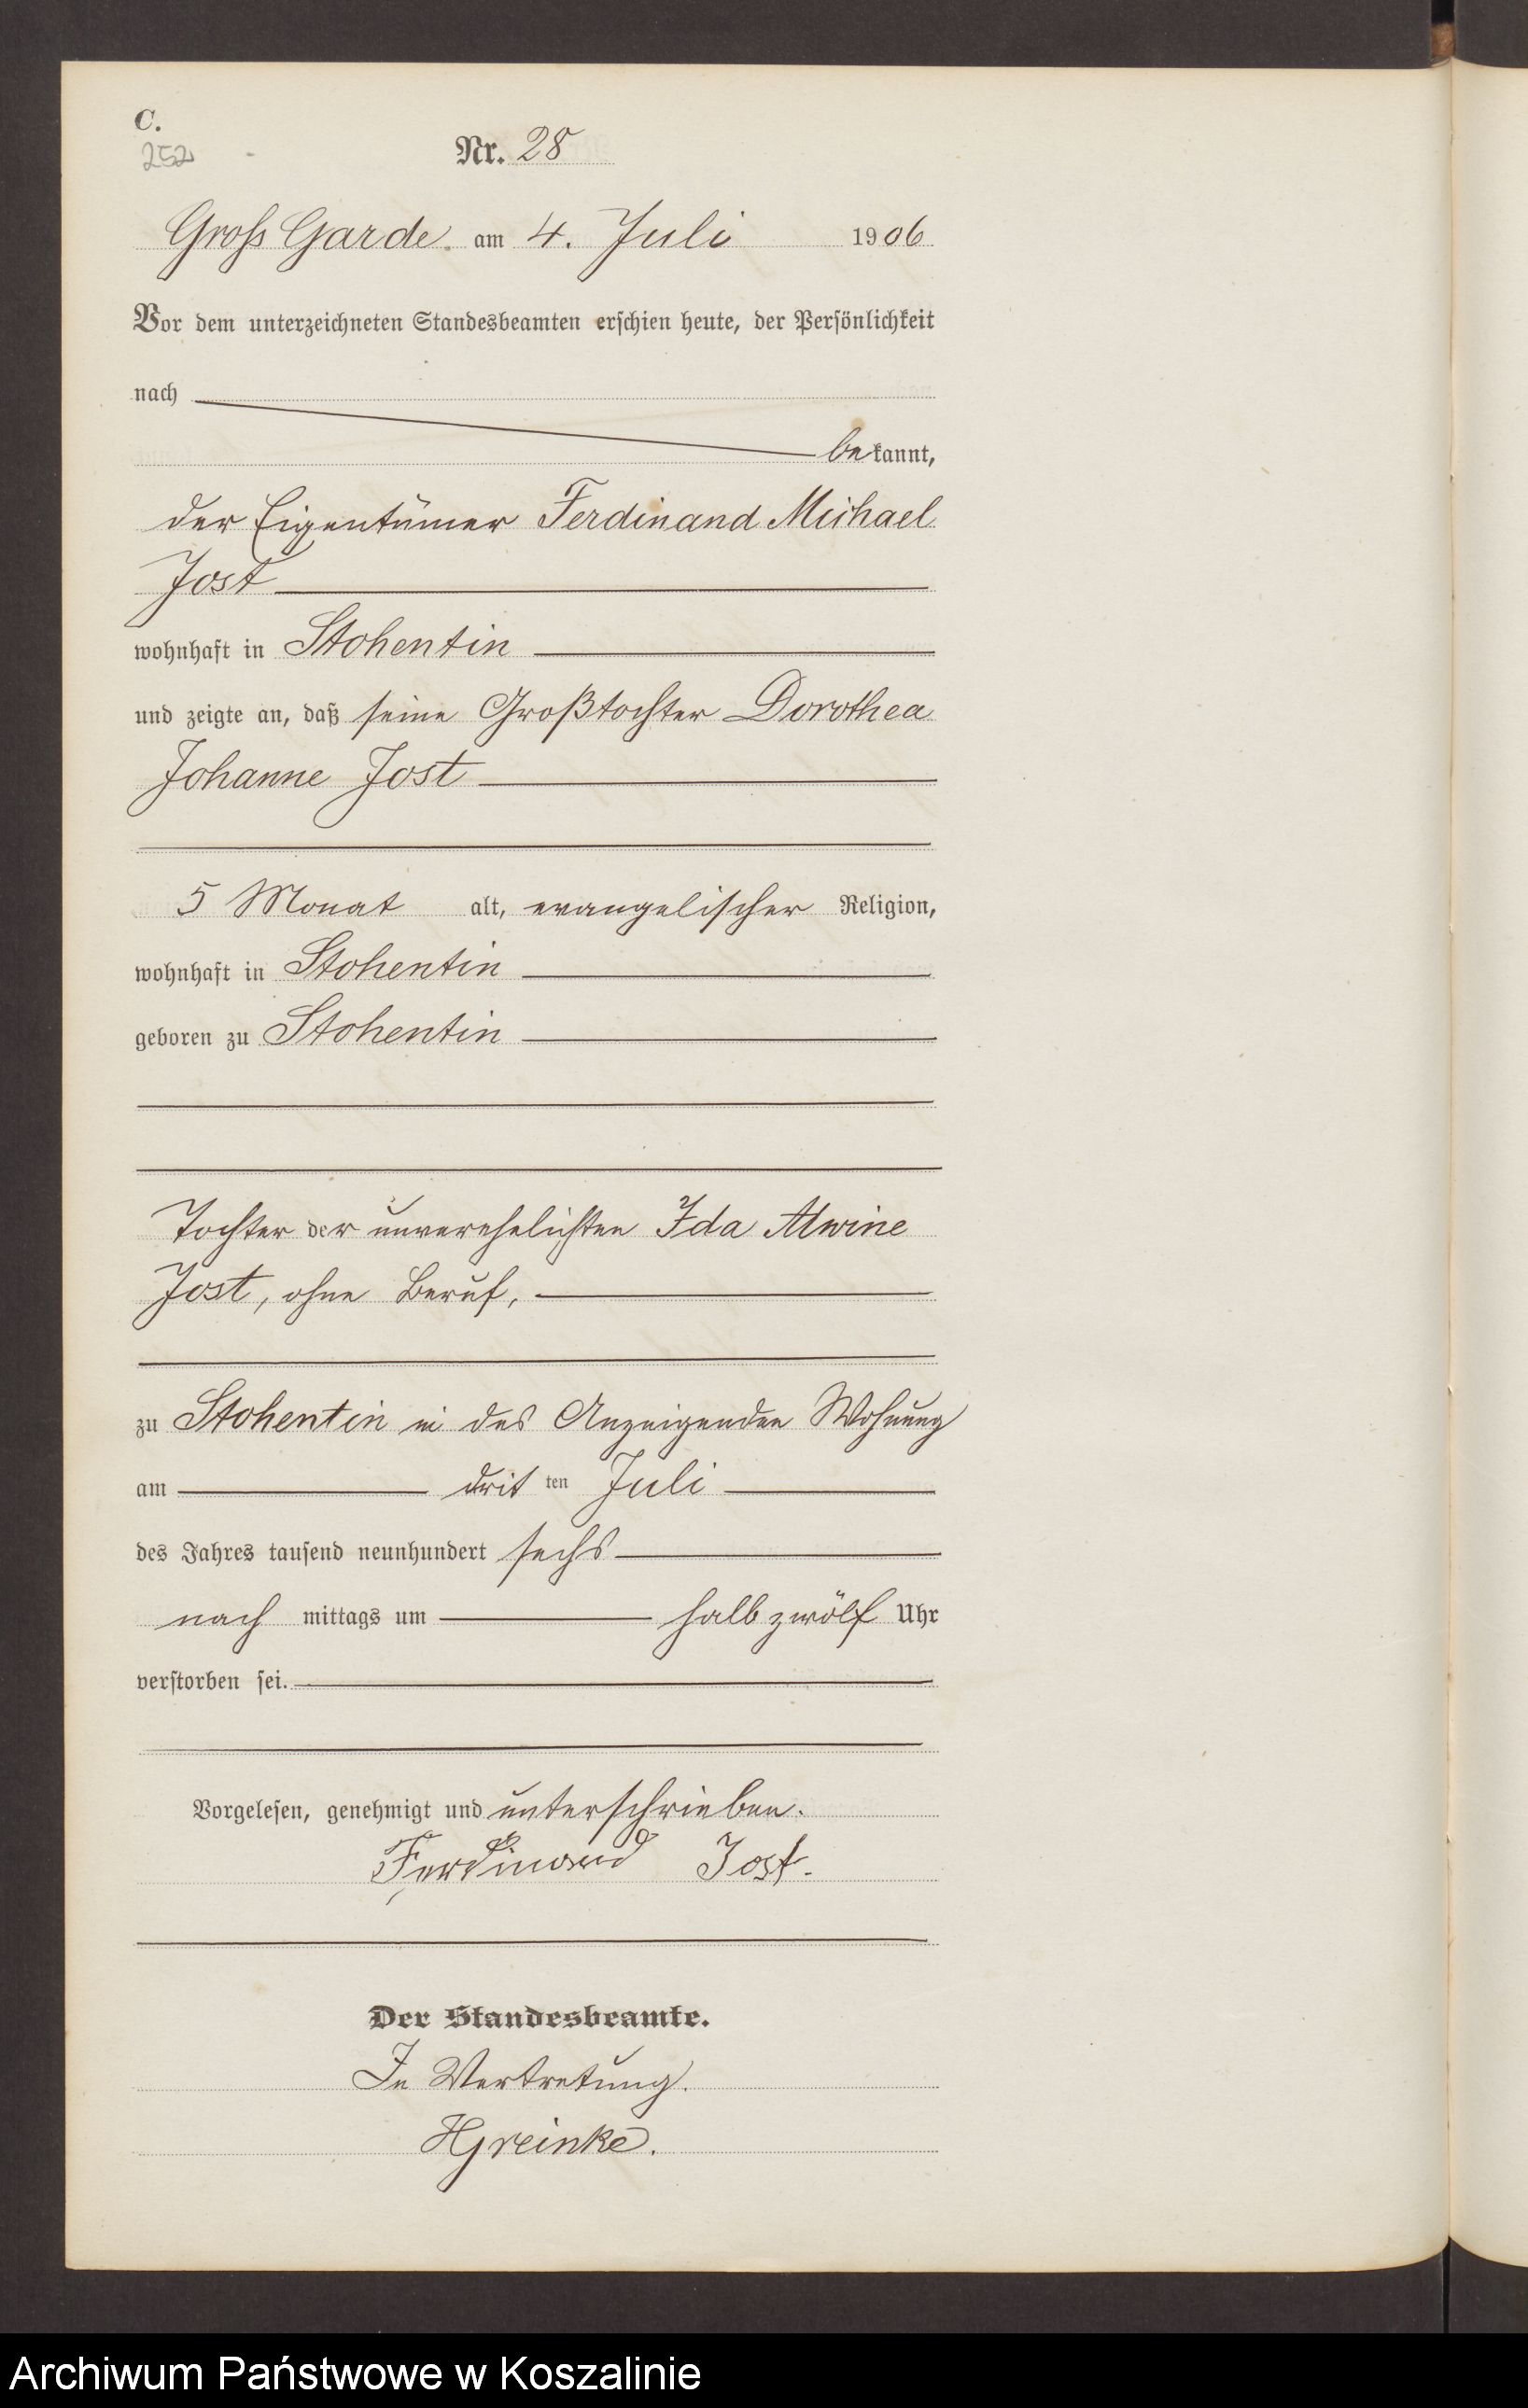 C.
252
Nr. 28
Gross Garde. am 4. Juli 1906
Vor dem unterzeichneten Standesbeamten erschien heute, der Persönlichkeit
nach
bekannt,
der Eigentümer Ferdinand Michael
Jost
wohnhaft in Stohentin
und zeigte an, daß seine Großtochter Dorothea
Johanne Jost
5 Monat alt, evangelischer Religion,
wohnhaft in Stohentin
geboren zu Stohentin
Tochter der unverehelichten Ida Alwine
Jost, ohne Beruf,
zu Stohentin in des Anzeigenden Wohnung
am dritten Juli
des Jahres tausend neunhundert sechs
nachmittags um halb zwölf Uhr
verstorben sei.
Vorgelesen, genehmigt und unterschrieben.
Ferdinand Jost.
Der Standesbeamte.
In Vertretung.
HGreinke.
Archiwum Państwowe w Koszalinie